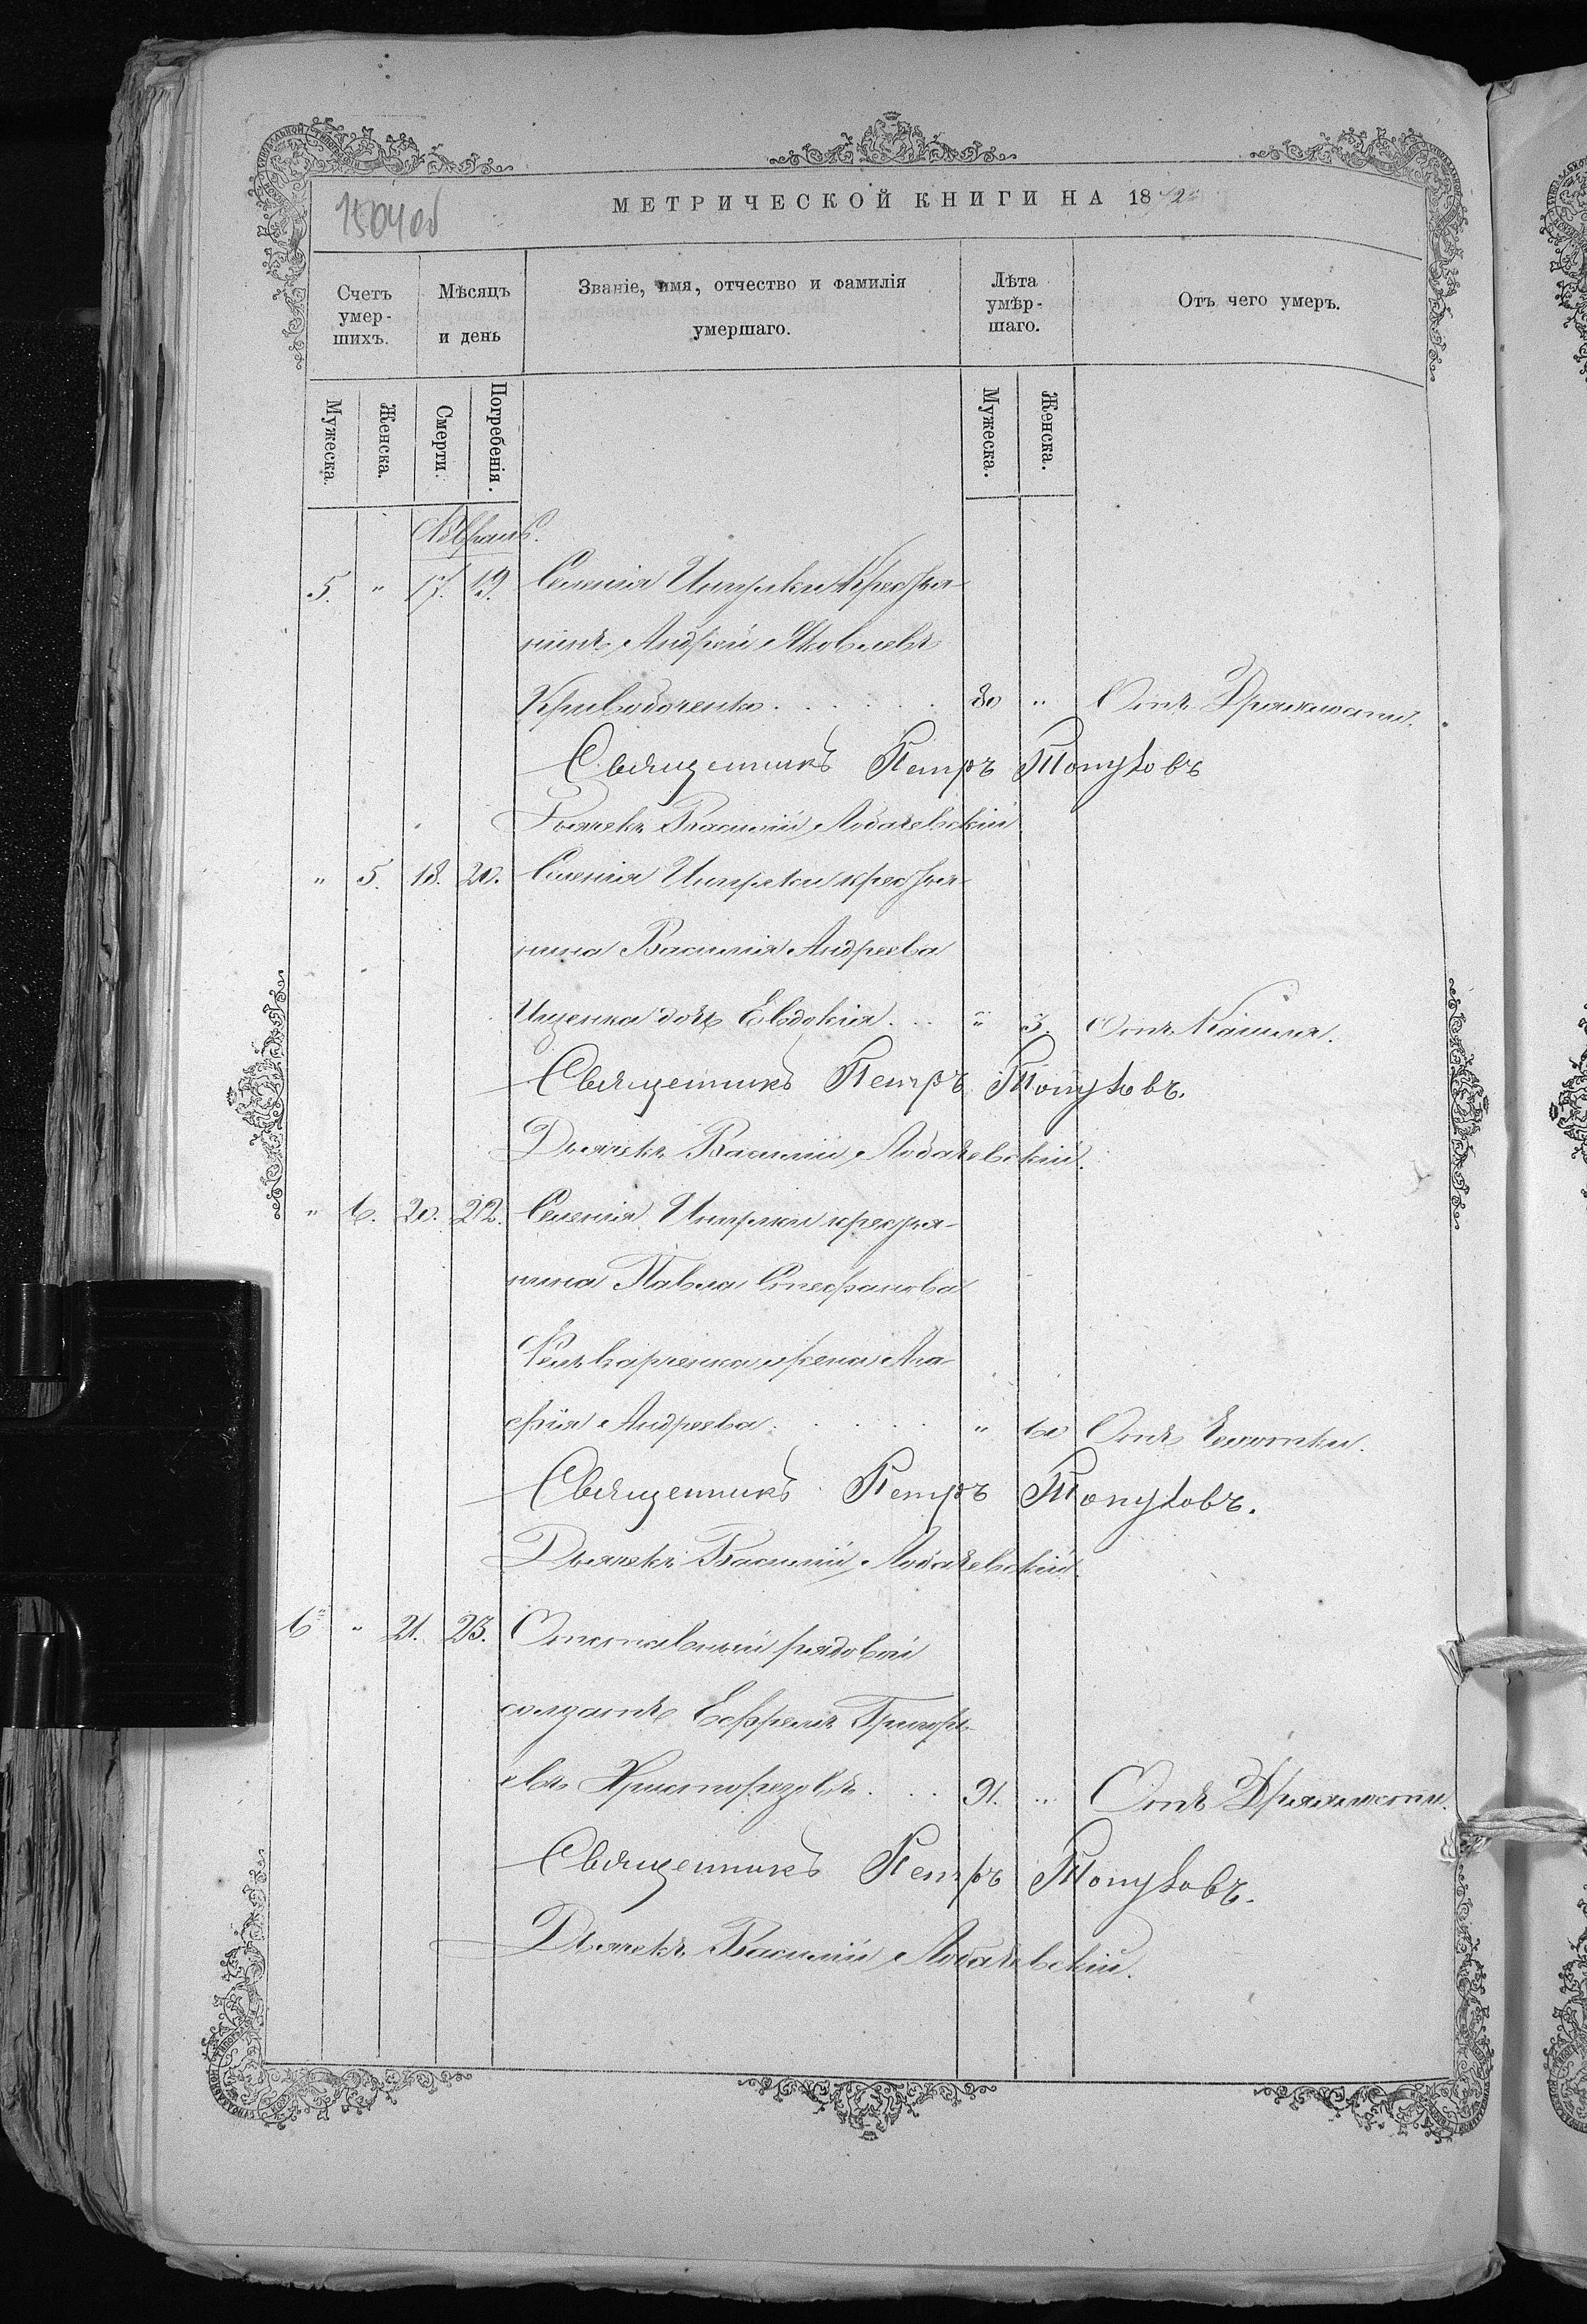 1504 об
МЕТРИЧЕСКОЙ КНИГИ НА 18
Счетъ умер-шихъ. Мѣсяцъ и день Званіе, имя, отчество и фамилія умершаго. Лѣта умер-шаго. Отъ чего умеръ.
Мужеска. Женска. Смерти. Погребенія. Мужеска. Женска.
Февраль.
5. " 17. 19. Селенія Крестья-
нинъ Андрей Яковлевъ
80 " Отъ Дряхлости.
Священникъ Петръ Топуховъ
Дьячекъ Василій Лобачевскій
" 5. 18. 20. Селенія крестья-
нина Василія Андреева
Ищенка дочь Евдокія. . . " 3. Отъ Кашля.
Священникъ Петръ Топуховъ.
Дьячекъ Василій Лобачевскій.
" 6. 20. 22. Селенія крестья-
нина Павла Стефанова
жена Ма-
" 60 Отъ Чахотки.
Андреева. . . . . .
Священникъ Петръ Топуховъ.
Дьячекъ Василій Лобачевскій.
6 " 21. 23. Отставный рядовой
солдатъ Ефремъ Григорь-
евъ . . . 91. " Отъ Дряхлости.
Священникъ Петръ Топуховъ.
Дьячекъ Василій Лобачевскій.